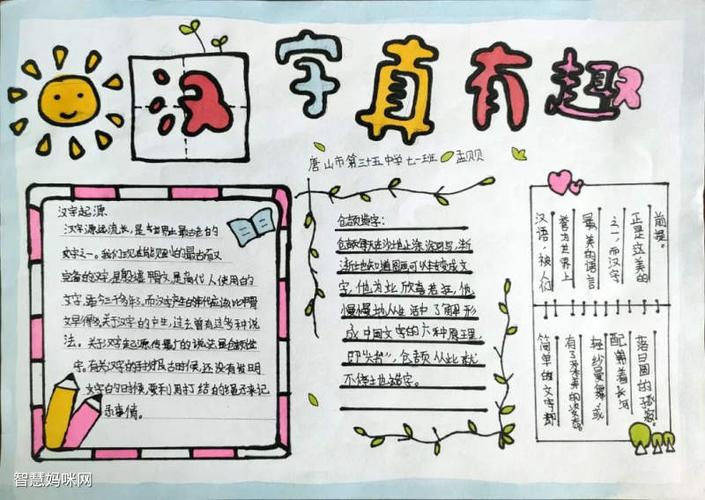 汉字真有趣
唐山市第三十五中学七一班 孟贝贝
汉字起源
汉字源起流长,是世界上最古老的
文字之一。我们现在能见到的最古而又
完备的汉字,是殷墟甲骨文,是商代人使用的
文字,距今三千多年,而汉字产生的年代应该比甲骨
文早得多,关于汉字的产生,过去曾有过多种说
法。关于汉字起源,传最广的说法是仓颉造
字。有关汉字的手抄报古时候,还没有发明
文字的时候,要利用打结的绳子来记
录事情。
仓颉造字:
仓颉每天在沙地上涂涂写写,渐
渐他知道图画可以转变成文
字,他为此欣喜若狂,他
慢慢地从生活中了解形
成中国文字的六种原理,
即"六书",仓颉从此就
不停地造字。
前提。
正是立美的
之一,而汉字
最美的语言
誉为世界上
汉语,被人们
落日圆的
配着长河
轻纱曼舞,或
有了
简单的文字都
智慧妈咪网